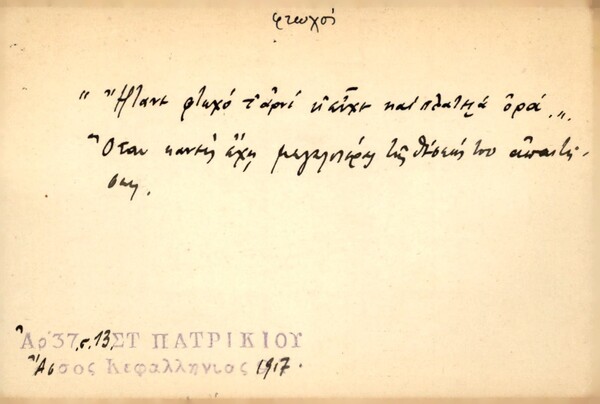 φτωχός
" Ἤτανε φτωχό τ' ἀρνί κ' εἶχε καί πλατειά ὀρά „
Ὅταν κανείς ἔχῃ μεγαλυτέρας τῆς θέσεώς του ἀπαιτή-
σεις.
Ἀρ. 37, σ. 13. ΣΤ ΠΑΤΡΙΚΙΟΥ
Ἄσσος Κεφαλληνίας 1917.